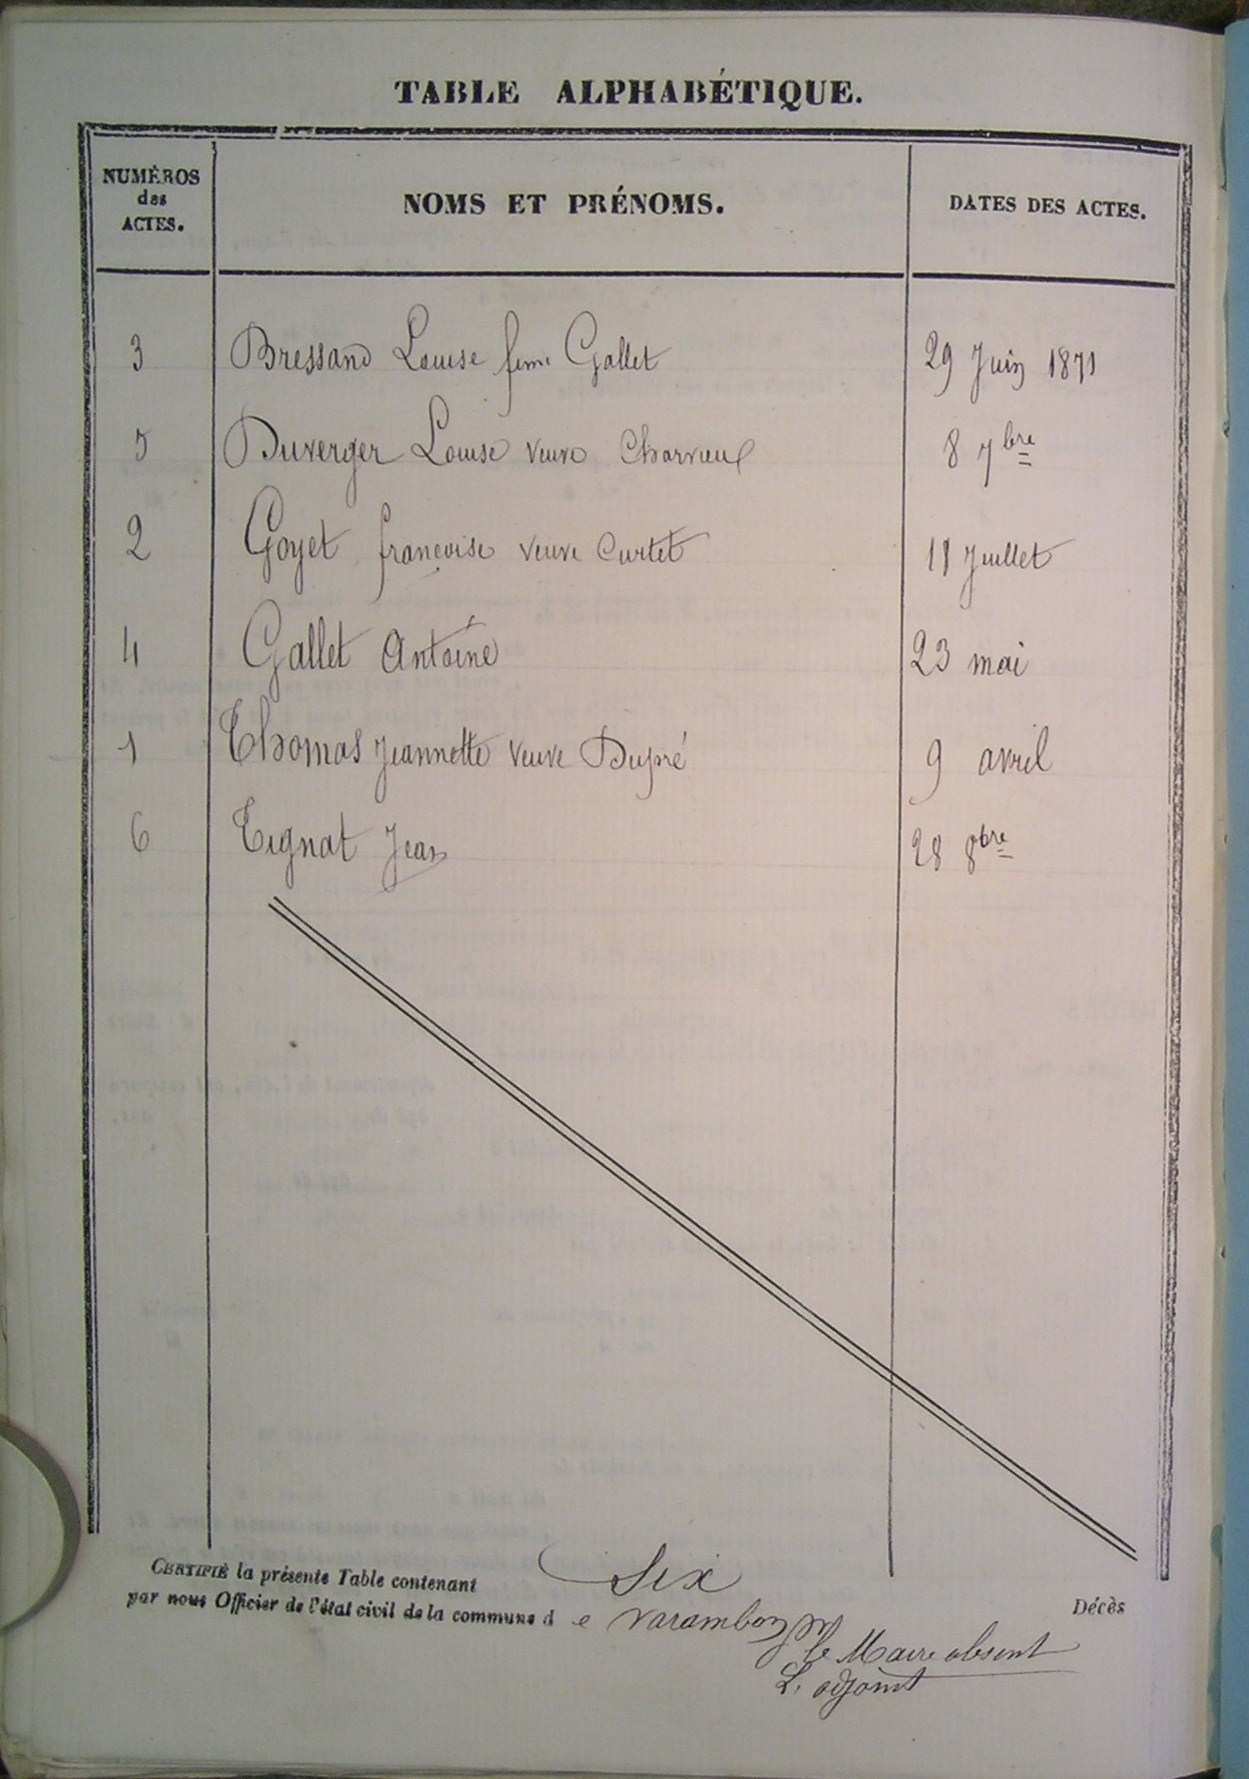 TABLE ALPHABÉTIQUE.
NUMÉROS
des
ACTES.
NOMS ET PRÉNOMS.
DATES DES ACTES.
3 Bressand Louise fem. Gallet 29 Juin 1871
5 Duverger Louise veuve Charvieux 8 7bre
2 Goyet françoise veuve Curtet 11 Juillet
4 Gallet Antoine 23 mai
1 Thomas Jeannette veuve Dupré 9 avril
6 Tignat Jean 28 8bre
CERTIFIÉ la présente Table contenant Six Décès
par nous Officier de l'état civil de la commune d e Varambon
Le Maire absent
L. adjoint